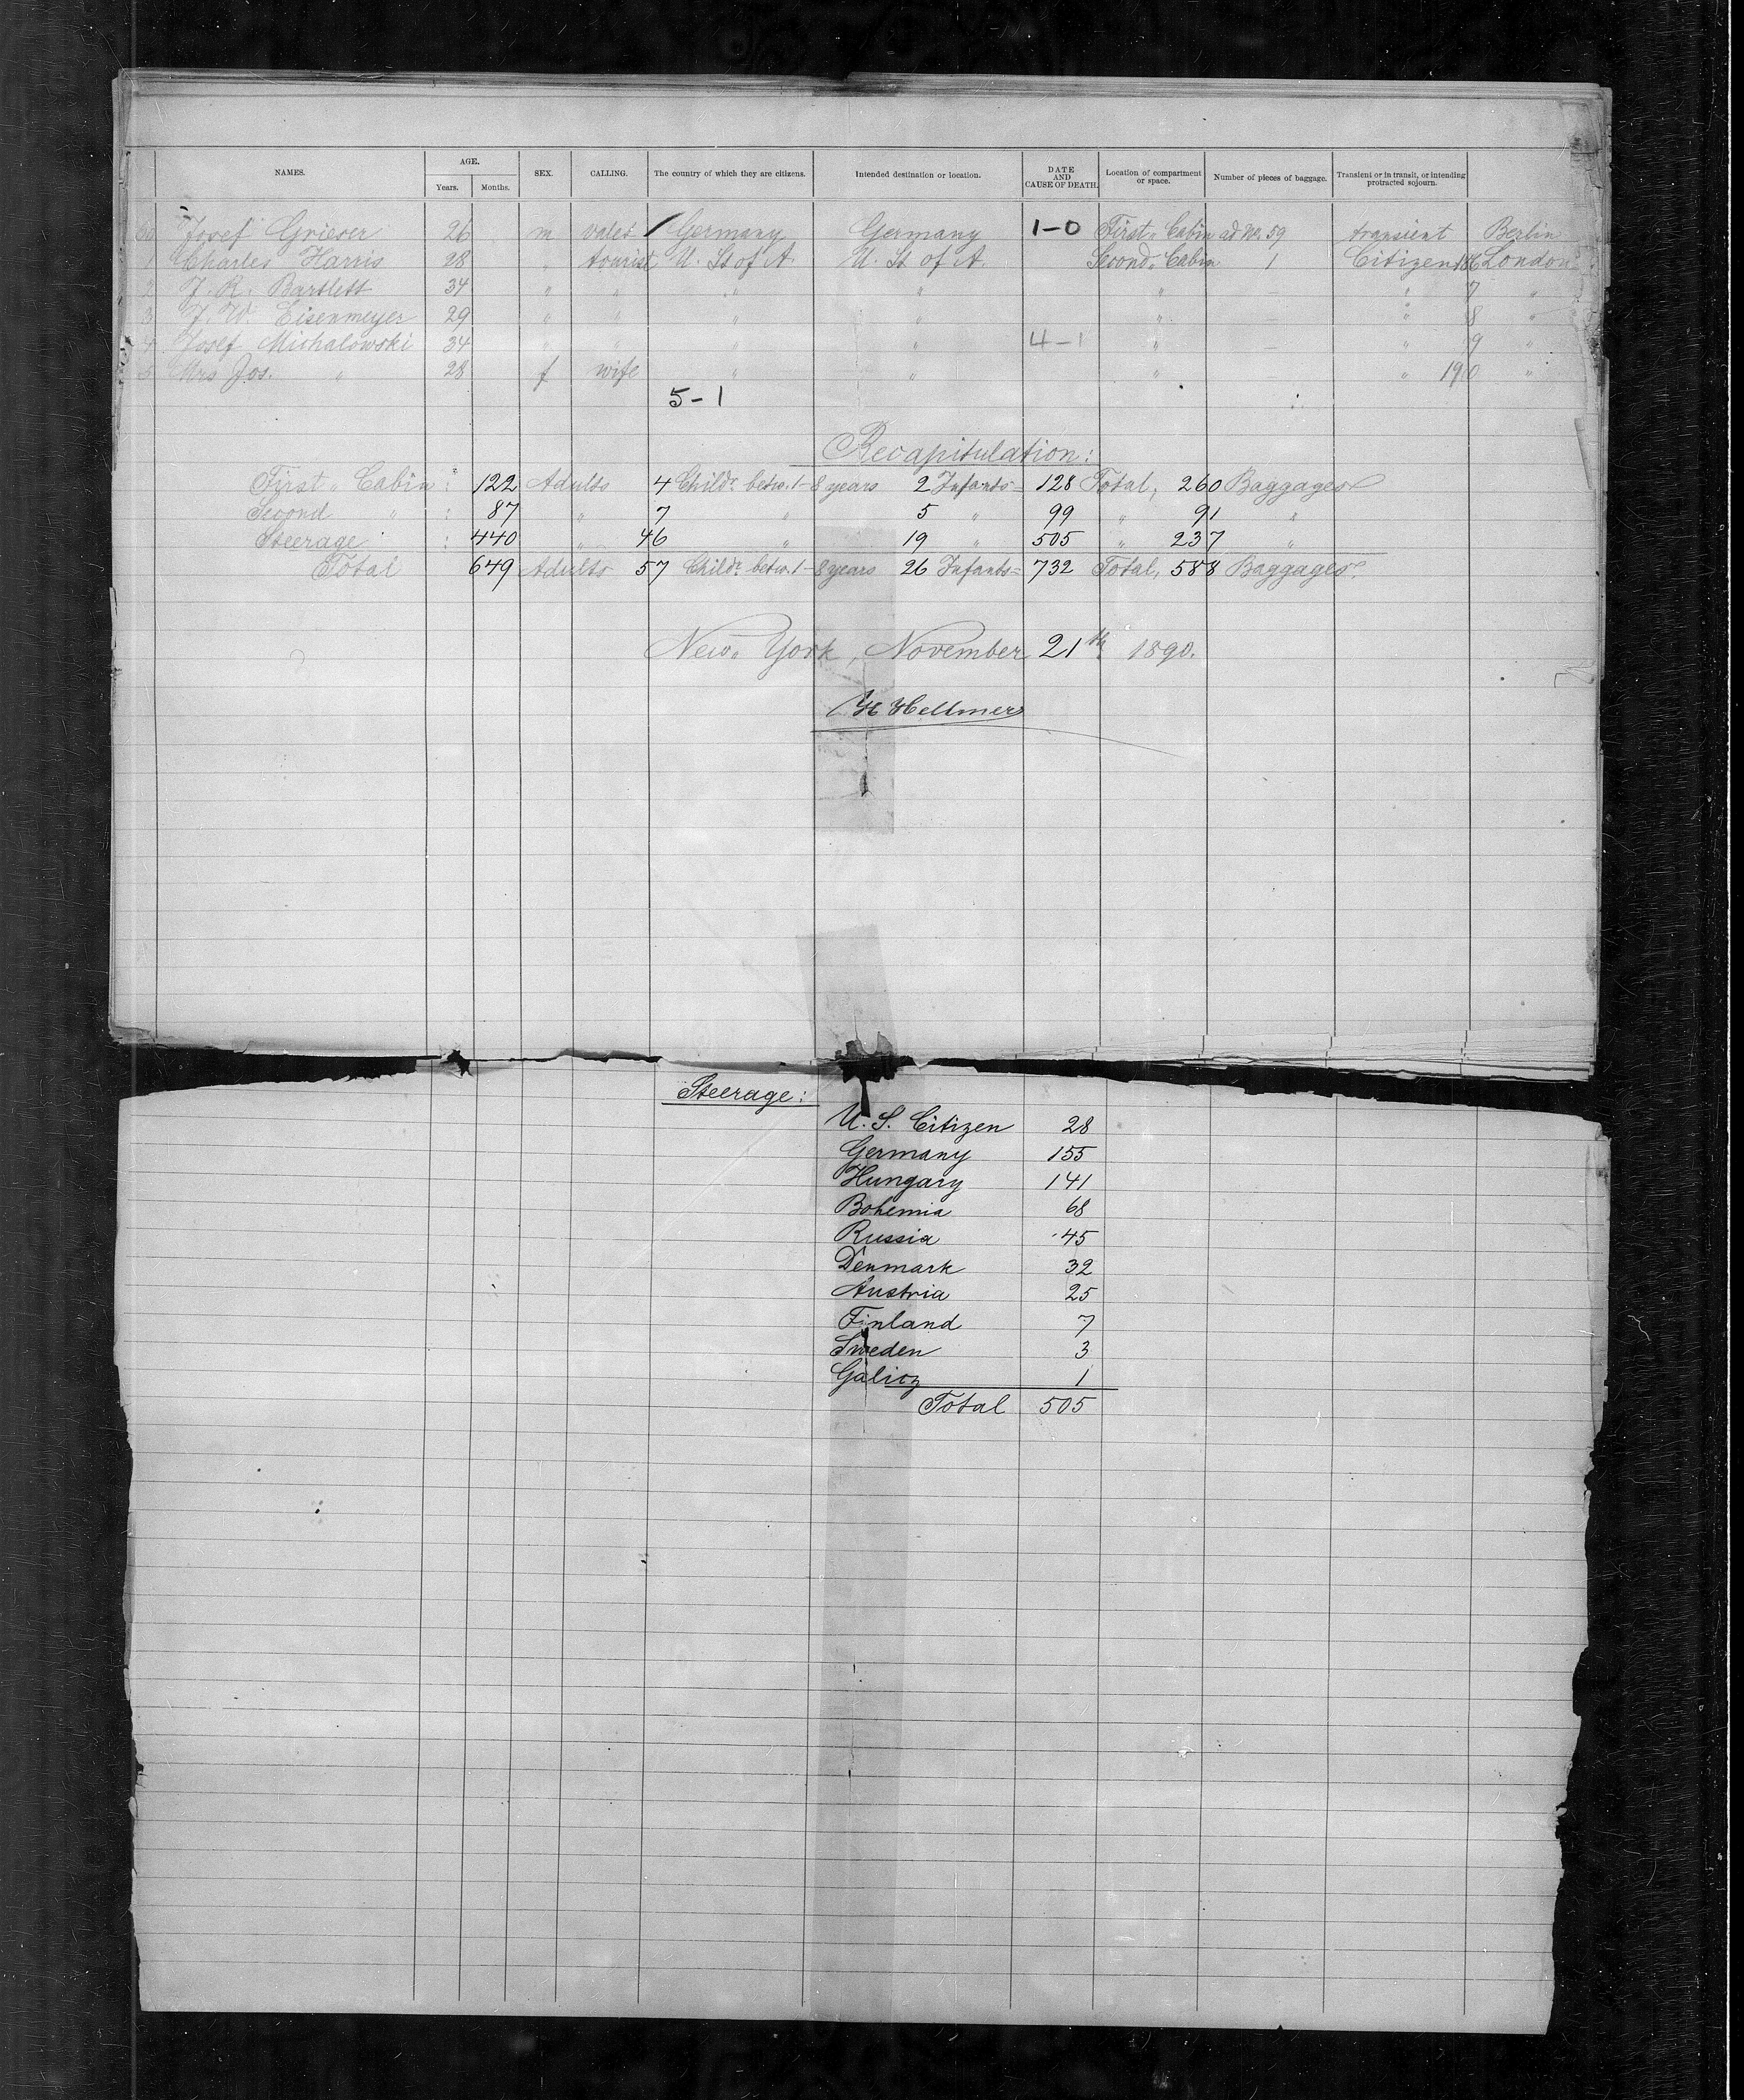 NAMES. AGE. Years. Months. SEX. CALLING. The country of which they are citizens. Intended destination or location. DATE AND CAUSE OF DEATH. Location of compartment or space. Number of pieces of baggage. Transient or in transit, or intending protracted sojourn.
Josef Grieser 26 m valet Germany Germany 1-0 First " Cabin ad No. 59 transient Berlin
1 Charles Harris 28 " tourist U. St of A. U. St of A. Second " Cabin 1 Citizen 186 London
2 J. R. Bartlett 34 " " " " " — " 7 "
3 J. W. Eisenmeyer 29 " " " " " — " 8 "
4 Josef Michalowski 34 " " " " 4-1 " — " 9 "
5 Mrs Jos. " 28 f wife " " " — " 190 "
5-1
Recapitulation:
First " Cabin : 122 Adults 4 Childr. betw. 1-8 years 2 Infants = 128 Total, 260 Baggages
Second " : 87 " 7 " 5 " 99 " 91 "
Steerage : 440 " 46 " 19 " 505 " 237 "
Total 649 Adults 57 Childr. betw. 1-8 years 26 Infants = 732 Total, 588 Baggages.
New York, November 21th 1890.
H Hellmers
Steerage:
U. S. Citizen 28
Germany 155
Hungary 141
Bohemia 68
Russia 45
Denmark 32
Austria 25
Finland 7
Sweden 3
Galicz 1
Total 505